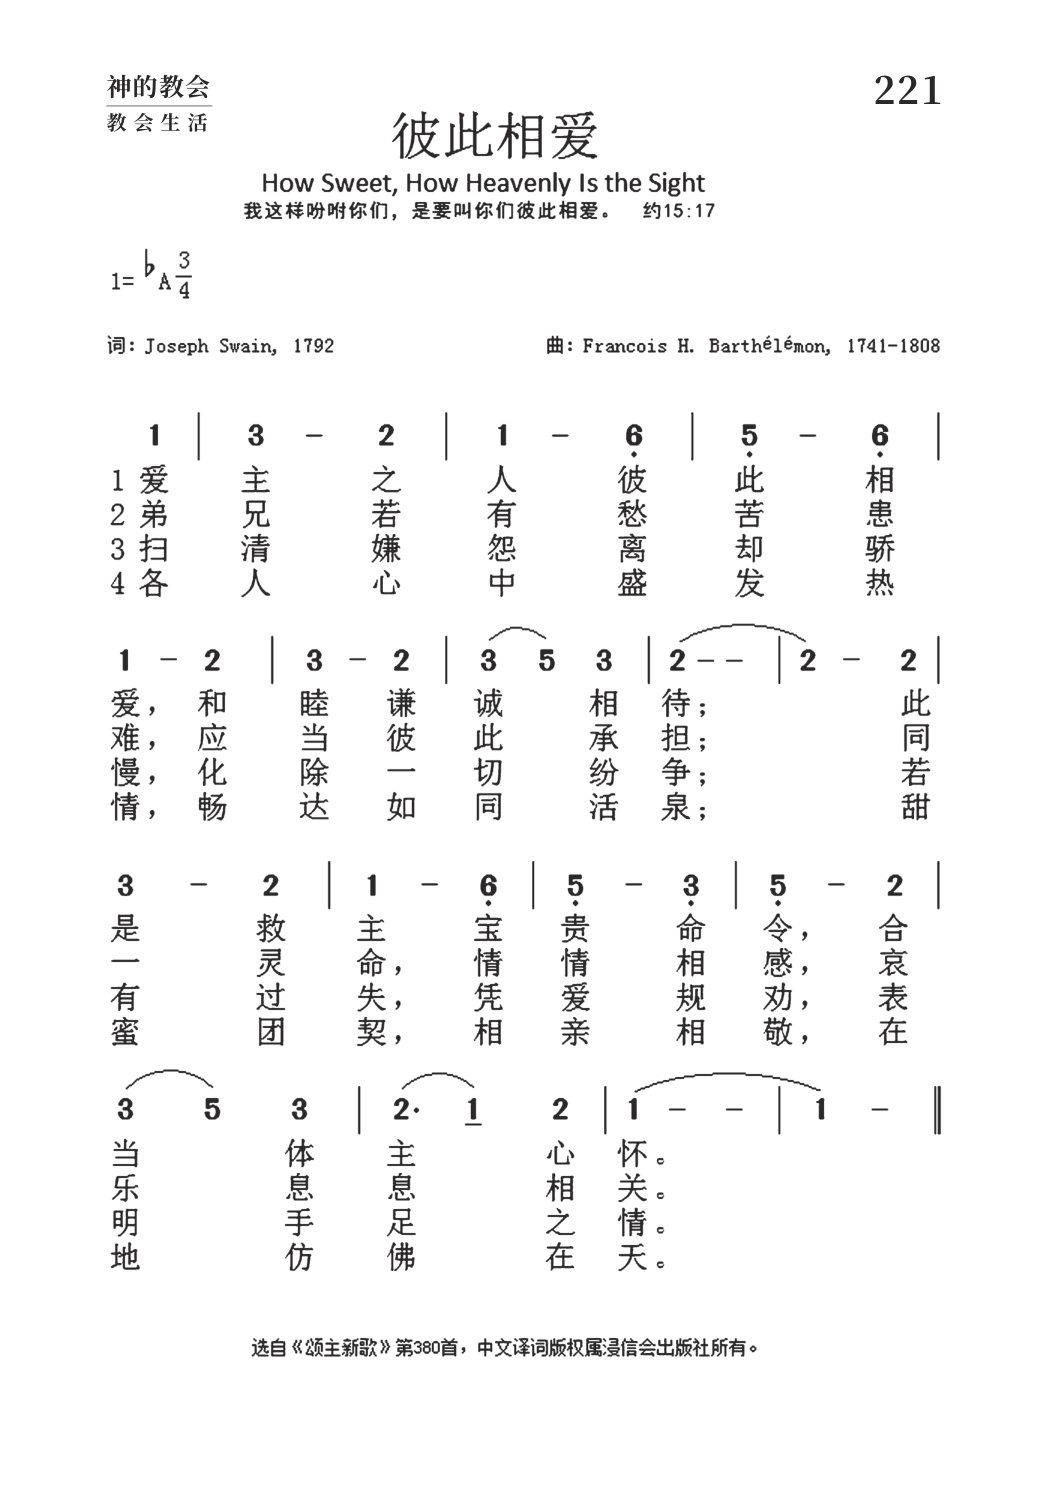 神的教会
教会生活
221
彼此相爱
How Sweet, How Heavenly Is the Sight
我这样吩咐你们，是要叫你们彼此相爱。 约15:17
1= ♭A 3/4
词：Joseph Swain, 1792 曲：Francois H. Barthélémon, 1741-1808
1 | 3 － 2 | 1 － 6̣ | 5̣ － 6̣ |
1 爱 主 之 人 彼 此 相
2 弟 兄 若 有 愁 苦 患
3 扫 清 嫌 怨 离 却 骄
4 各 人 心 中 盛 发 热
1 － 2 | 3 － 2 | 3 5 3 | 2 - - | 2 － 2 |
爱， 和 睦 谦 诚 相 待； 此
难， 应 当 彼 此 承 担； 同
慢， 化 除 一 切 纷 争； 若
情， 畅 达 如 同 活 泉； 甜
3 － 2 | 1 － 6̣ | 5̣ － 3̣ | 5̣ － 2 |
是 救 主 宝 贵 命 令， 合
一 灵 命， 情 情 相 感， 哀
有 过 失， 凭 爱 规 劝， 表
蜜 团 契， 相 亲 相 敬， 在
3 5 3 | 2· 1 2 | 1 － － | 1 － ‖
当 体 主 心 怀。
乐 息 息 相 关。
明 手 足 之 情。
地 仿 佛 在 天。
选自《颂主新歌》第380首，中文译词版权属浸信会出版社所有。